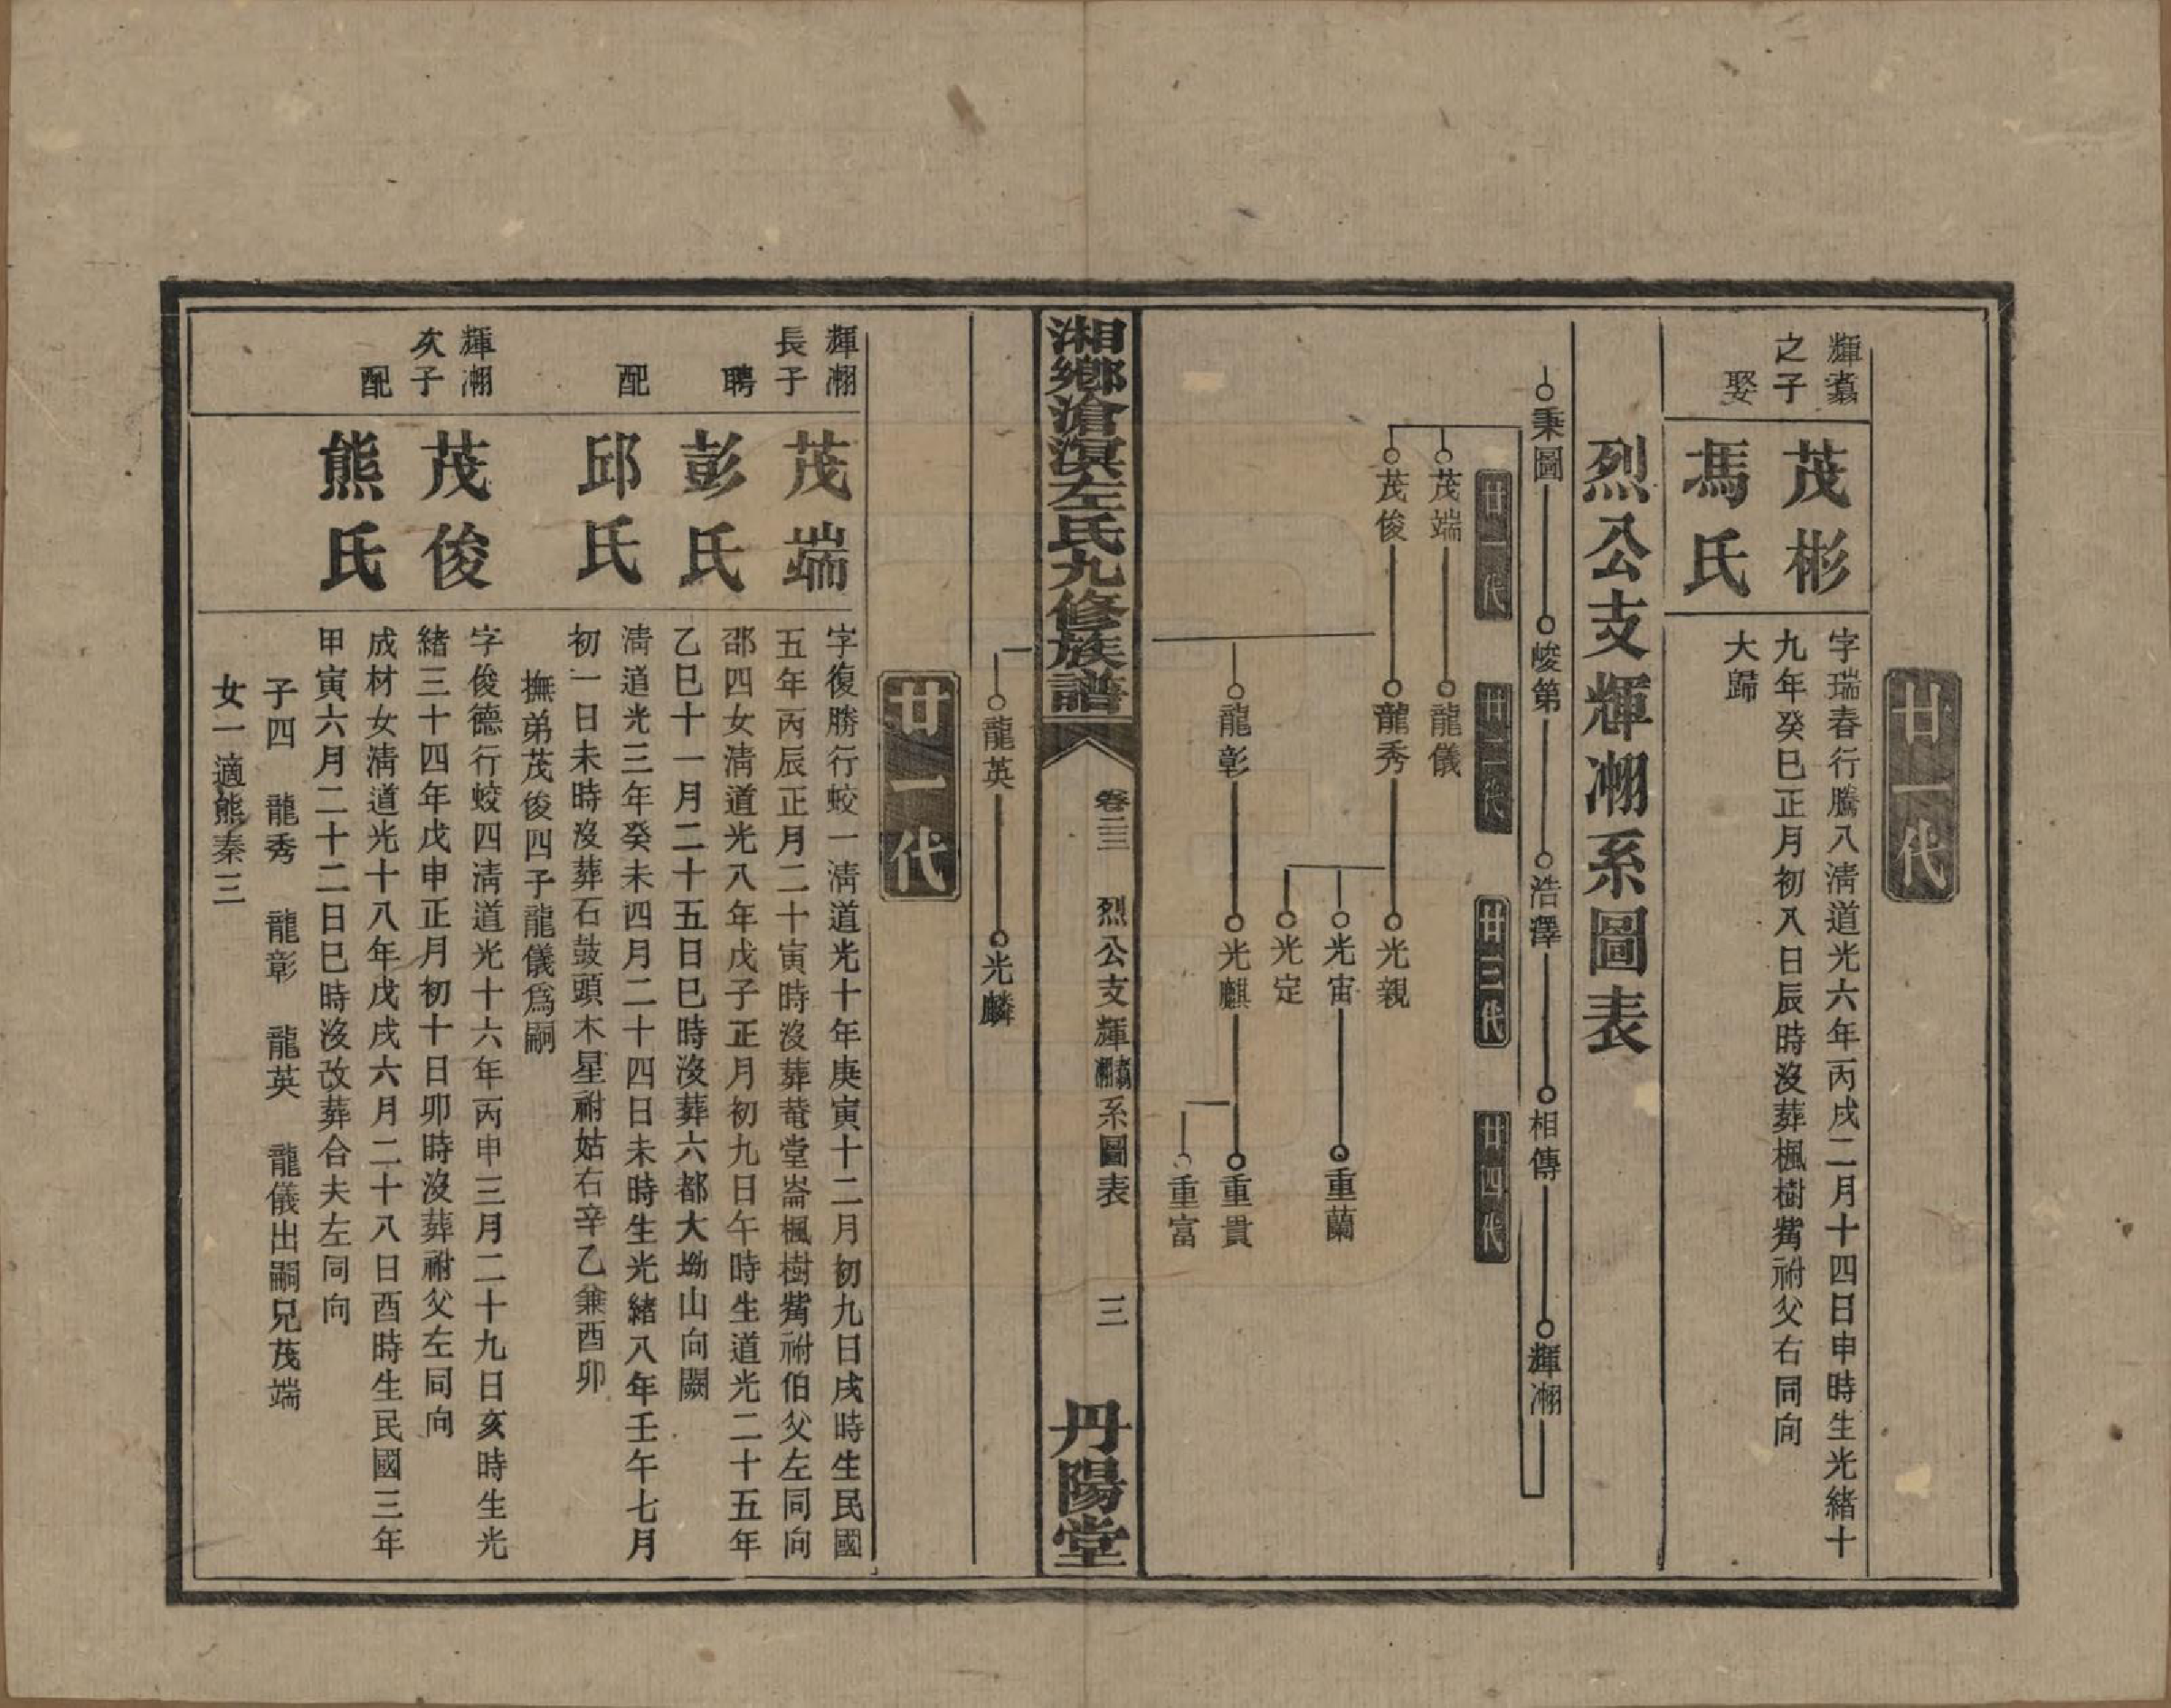 廿一代
輝翥
之子
娶
茂彬
馮氏
字瑞春行騰八淸道光六年丙戌二月十四日申時生光緒十
九年癸巳正月初八日辰時沒葬楓樹觜祔父右同向
大歸
烈公支輝翀系圖表
秉圖
峻第
浩澤
相傳
輝翀
廿一代
廿二代
廿三代
廿四代
茂端
龍儀
茂俊
龍秀
光親
光宙
重蘭
光定
龍彰
光麒
重貫
重富
湘鄉滄溟左氏九修族譜
卷二三
烈公支輝翥翀系圖表
三
丹陽堂
龍英
光麟
廿一代
輝翀
長子
聘
配
茂端
彭氏
邱氏
字復勝行蛟一淸道光十年庚寅十二月初九日戌時生民國
五年丙辰正月二十寅時沒葬菴堂崙楓樹觜祔伯父左同向
邵四女淸道光八年戊子正月初九日午時生道光二十五年
乙巳十一月二十五日巳時沒葬六都大坳山向闕
淸道光三年癸未四月二十四日未時生光緒八年壬午七月
初一日未時沒葬石鼓頭木星祔姑右辛乙兼酉卯
撫弟茂俊四子龍儀爲嗣
輝翀
次子
配
茂俊
熊氏
字俊德行蛟四淸道光十六年丙申三月二十九日亥時生光
緒三十四年戊申正月初十日卯時沒葬祔父左同向
成材女淸道光十八年戊戌六月二十八日酉時生民國三年
甲寅六月二十二日巳時沒改葬合夫左同向
子四 龍秀 龍彰 龍英 龍儀出嗣兄茂端
女一適熊秦三